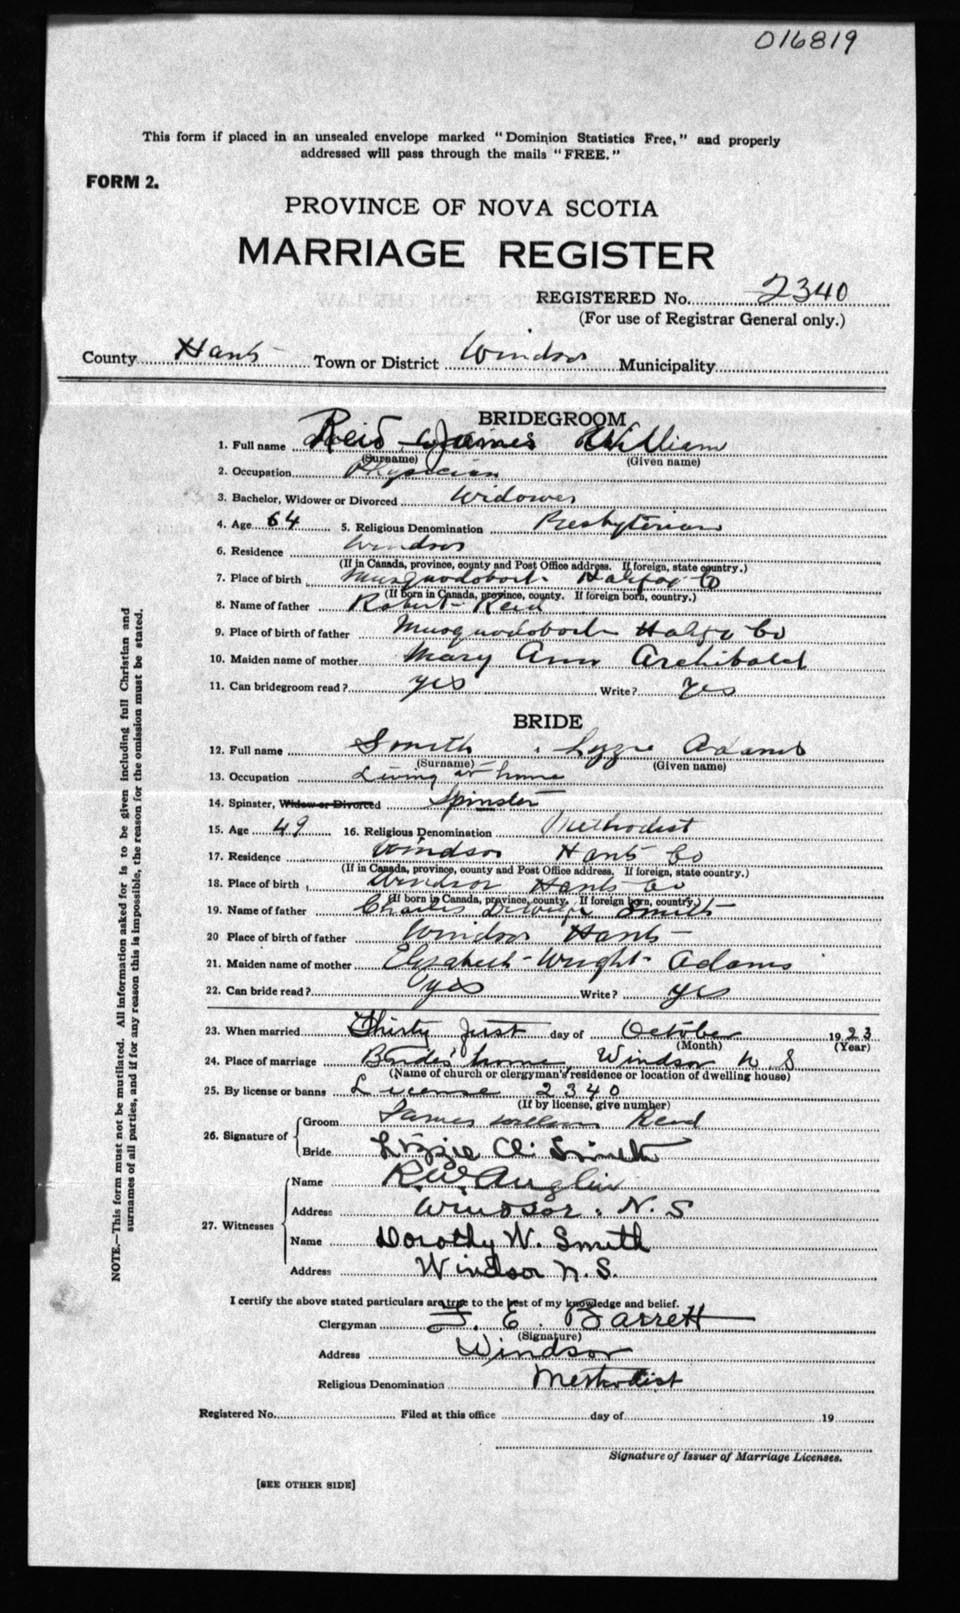 016819
This form if placed in an unsealed envelope marked "Dominion Statistics Free," and properly
addressed will pass through the mails "FREE."
FORM 2.
PROVINCE OF NOVA SCOTIA
MARRIAGE REGISTER
REGISTERED No. 2340
(For use of Registrar General only.)
County Hants Town or District Windsor Municipality
BRIDEGROOM
1. Full name Reid James William
(Surname) (Given name)
2. Occupation Physician
3. Bachelor, Widower or Divorced Widower
4. Age 64 5. Religious Denomination Presbyterian
6. Residence Windsor
(If in Canada, province, county and Post Office address. If foreign, state country.)
7. Place of birth Musquodoboit Halifax Co
(If born in Canada, province, county. If foreign born, country.)
8. Name of father Robert Reid
9. Place of birth of father Musquodoboit Halifx Co
10. Maiden name of mother Mary Ann Archibald
11. Can bridegroom read? yes Write? yes
BRIDE
12. Full name Smith Lizzie Adams
(Surname) (Given name)
13. Occupation Living at home
14. Spinster, Widow or Divorced Spinster
15. Age 49 16. Religious Denomination Methodist
17. Residence Windsor Hants Co
(If in Canada, province, county and Post Office address. If foreign, state country.)
18. Place of birth Windsor Hants Co
(If born in Canada, province, county. If foreign born, country.)
19. Name of father Charles Smith
20 Place of birth of father Windsor Hants
21. Maiden name of mother Elizabeth Wright Adams
22. Can bride read? yes Write? yes
23. When married Thirty first day of October 1923
(Month) (Year)
24. Place of marriage Brides' home Windsor N S
(Name of church or clergyman's residence or location of dwelling house)
25. By license or banns License 2340
(If by license, give number)
26. Signature of Groom James William Reid
Bride Lizzie A. Smith
27. Witnesses Name R. W. Anglin
Address Windsor, N. S
Name Dorothy W. Smith
Address Windsor N. S.
I certify the above stated particulars are true to the best of my knowledge and belief.
Clergyman F. E. Barrett
(Signature)
Address Windsor
Religious Denomination Methodist
Registered No. Filed at this office day of 19
Signature of Issuer of Marriage Licenses.
[SEE OTHER SIDE]
NOTE.—This form must not be mutilated. All information asked for is to be given including full Christian and
surnames of all parties, and if for any reason this is impossible, the reason for the omission must be stated.